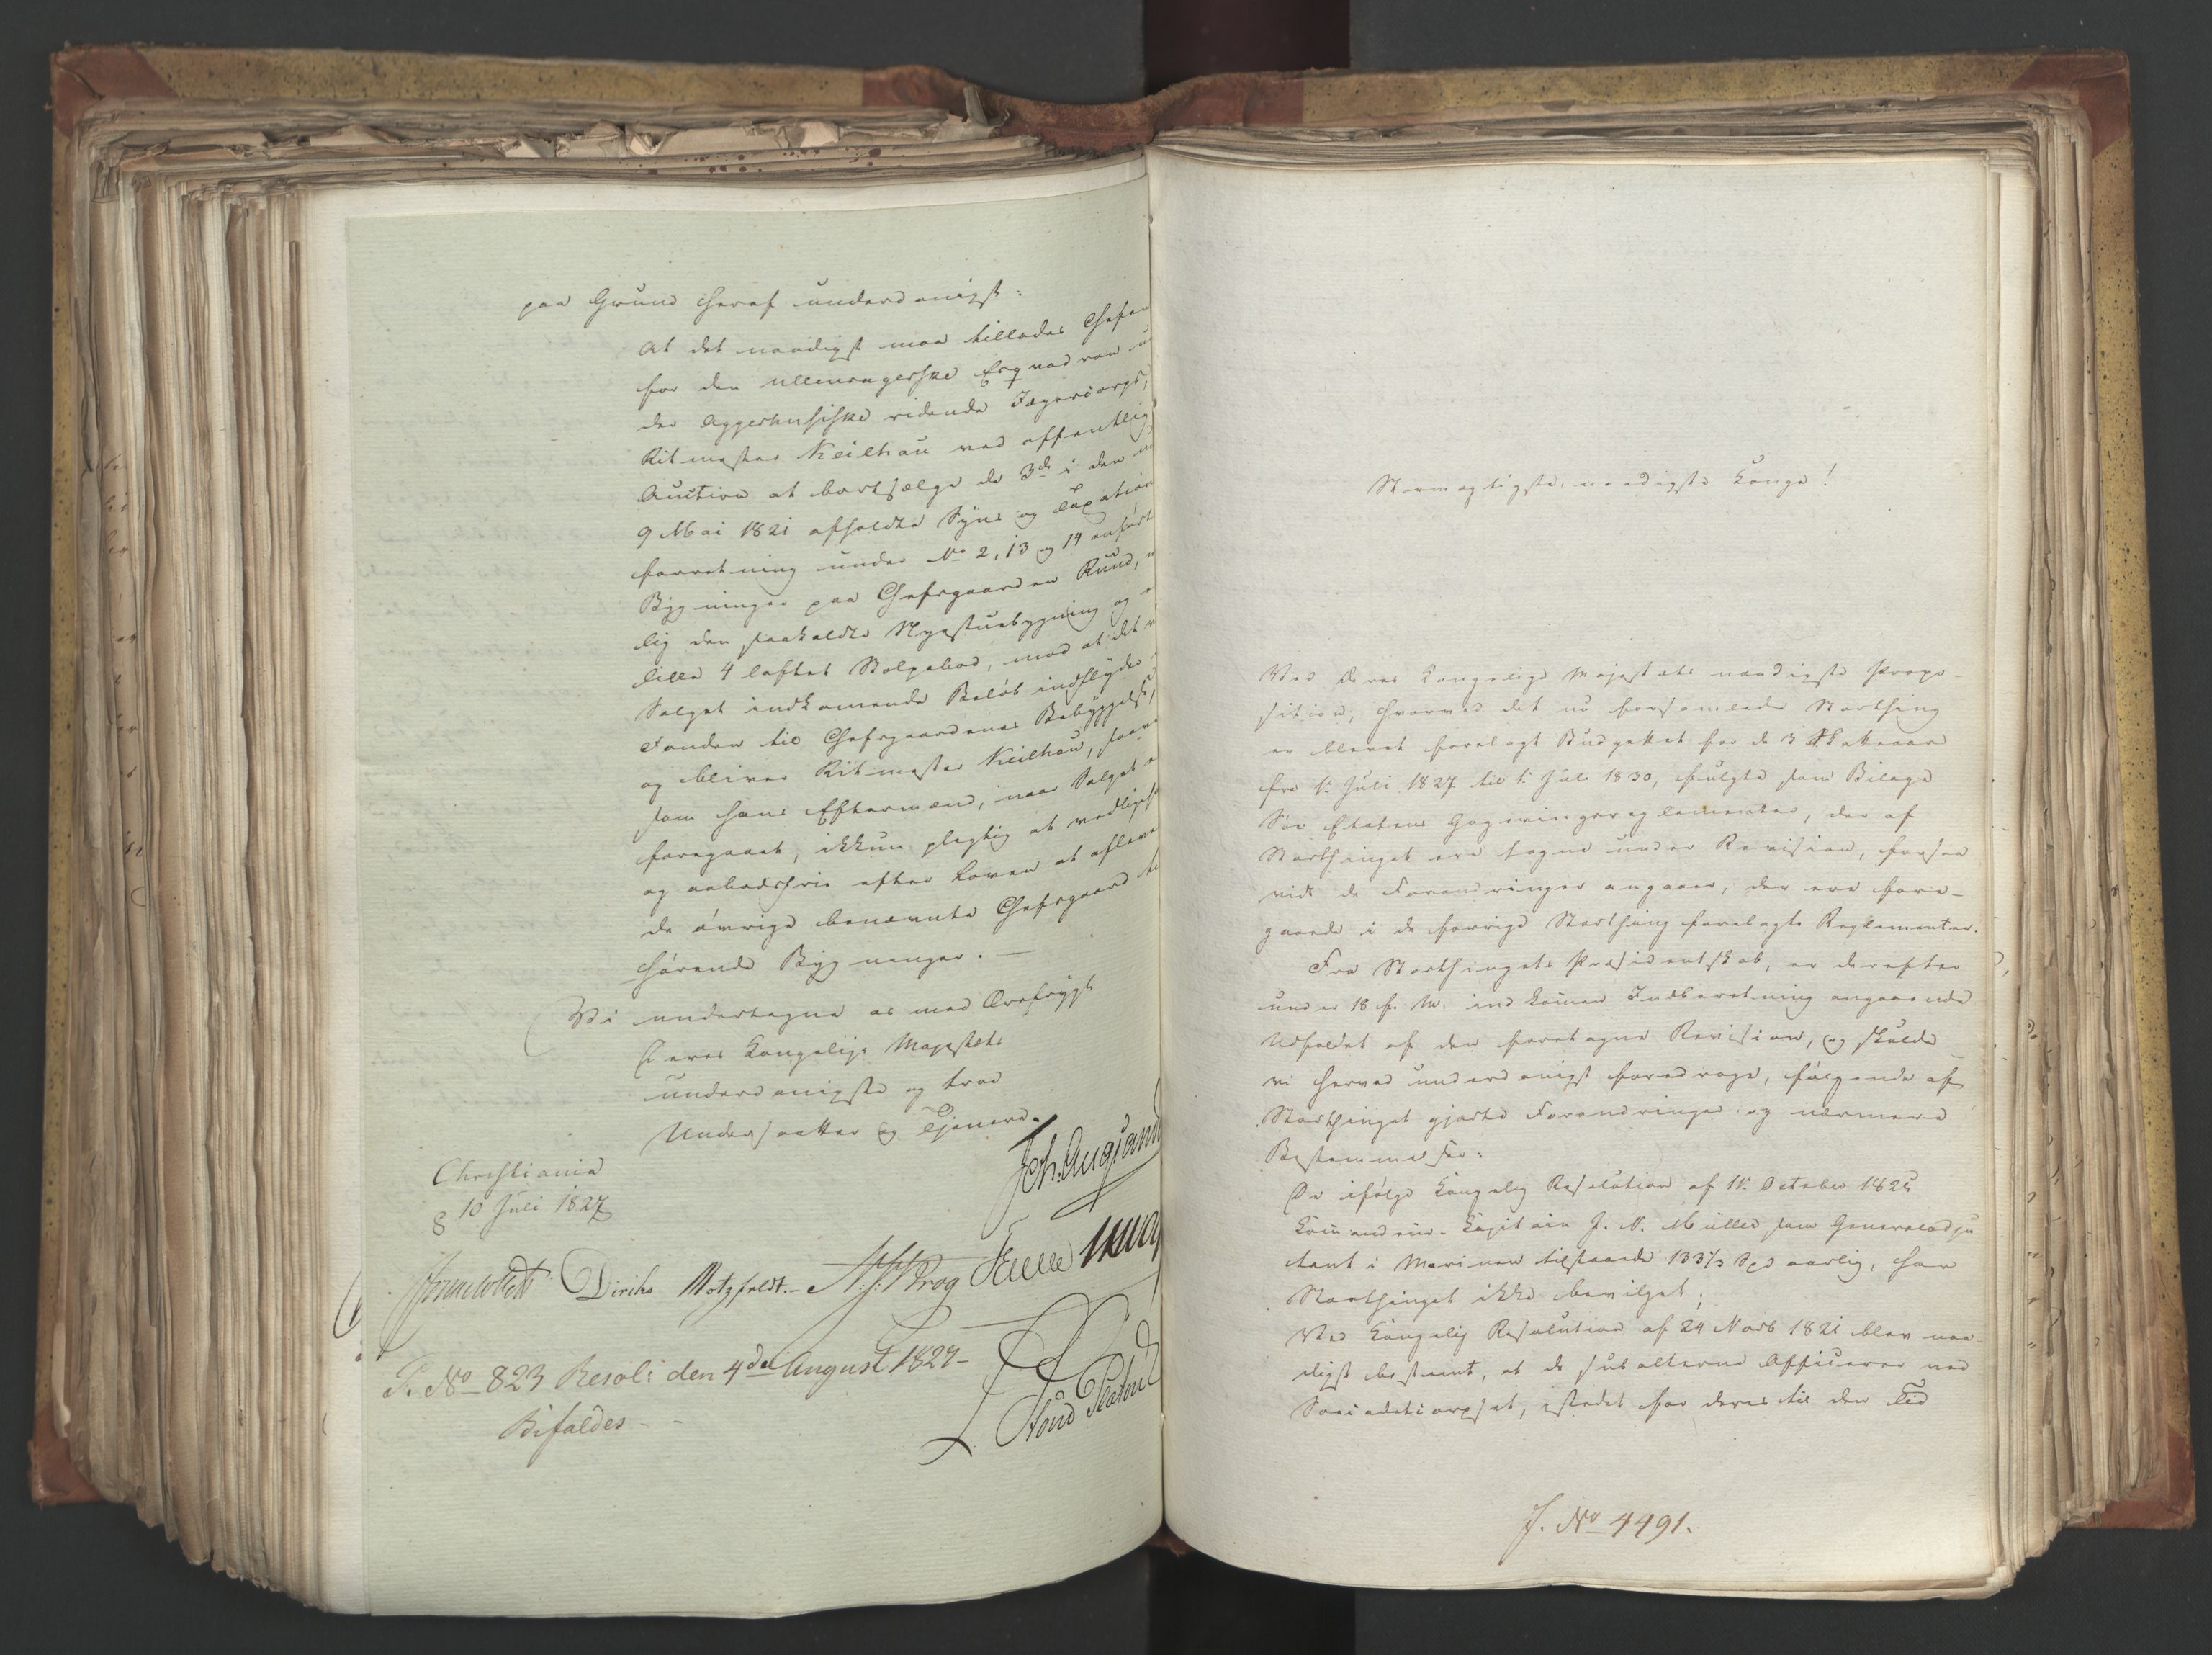 paa Grund heraf underdanigst:
At det naadigst maa tillades Chefen
for den Ullensagerske Esqvadron
det Aggershusiske ridende Jægercorps,
Ritmester Keilhau ved offentlig
Auction at bortsælge de 3de i den
9 Mai 1821 afholdte Syns og Taxations
forretning under No 2, 13 og 14 anførte
Bygninger paa Chefsgaarden Ruud,
lig den saakaldte Nyestuebygning og
lille 4 loftet Stolpebod, mod at det
Salget indkomende Beløb indflyder
Fonden til Chefsgaardenes Bebyggelse,
og bliver Ritmester Keilhau, saavel
som hans Eftermænd, naar Salget
foregaaet, ikkun pligtig at vedligeholde
og aabodsfrie efter Loven at aflevere
de øvrige benævnte Chefsgaard til
hørende Bygninger. —
Vi undertegne os med Ærefrygt
Deres Kongelige Majestets
underdanigste og troe
Undersaatter og Tjenere.
Christiania
10 Juli 1827
Joh. Collett
Diriks Motzfeldt.- Krog
P. No 823 Resol: den 4de August 1827-
Bifaldes - -
Stormægtigste, naadigste Konge!
Ved Deres Kongelige Majestæts naadigste Propo-
sition, hvorved det nu forsamlede Storthing
er blevet forelagt Budgettet for de 3 Skatteaar
fra 1. Juli 1827 til 1. Juli 1830, fulgte som Bilage
Søe Etatens Gageringsreglementer, der af
Storthinget ere tagne under Revision, forsaa
vidt de Forandringer angaaer, der ere fore-
gaaede i de forrige Storthing forelagte Reglementer.
Fra Storthingets Præsidentskab, er derefter
under 18 f. M. indkomen Indberetning angaaende
Udfaldet af den foretagne Revision, og skulde
vi herved underdanigst foredrage, følgende af
Storthinget gjorte Forandringer og nærmere
Bestemmelser:
De ifølge Kongelig Resolution af 11. October 1825
Comandeur-Capitain J. N. Müller som Generaladju
tant i Marinen tilstaaede 133⅓ Spd aarlig, har
Storthinget ikke bevilget;
Ved Kongelig Resolution af 24 Novb 1821 blev naa
digst bestemt, at de subalterne Officerer ved
Søecadetcorpset, istedet for deres til den Tid
J. No 4491.